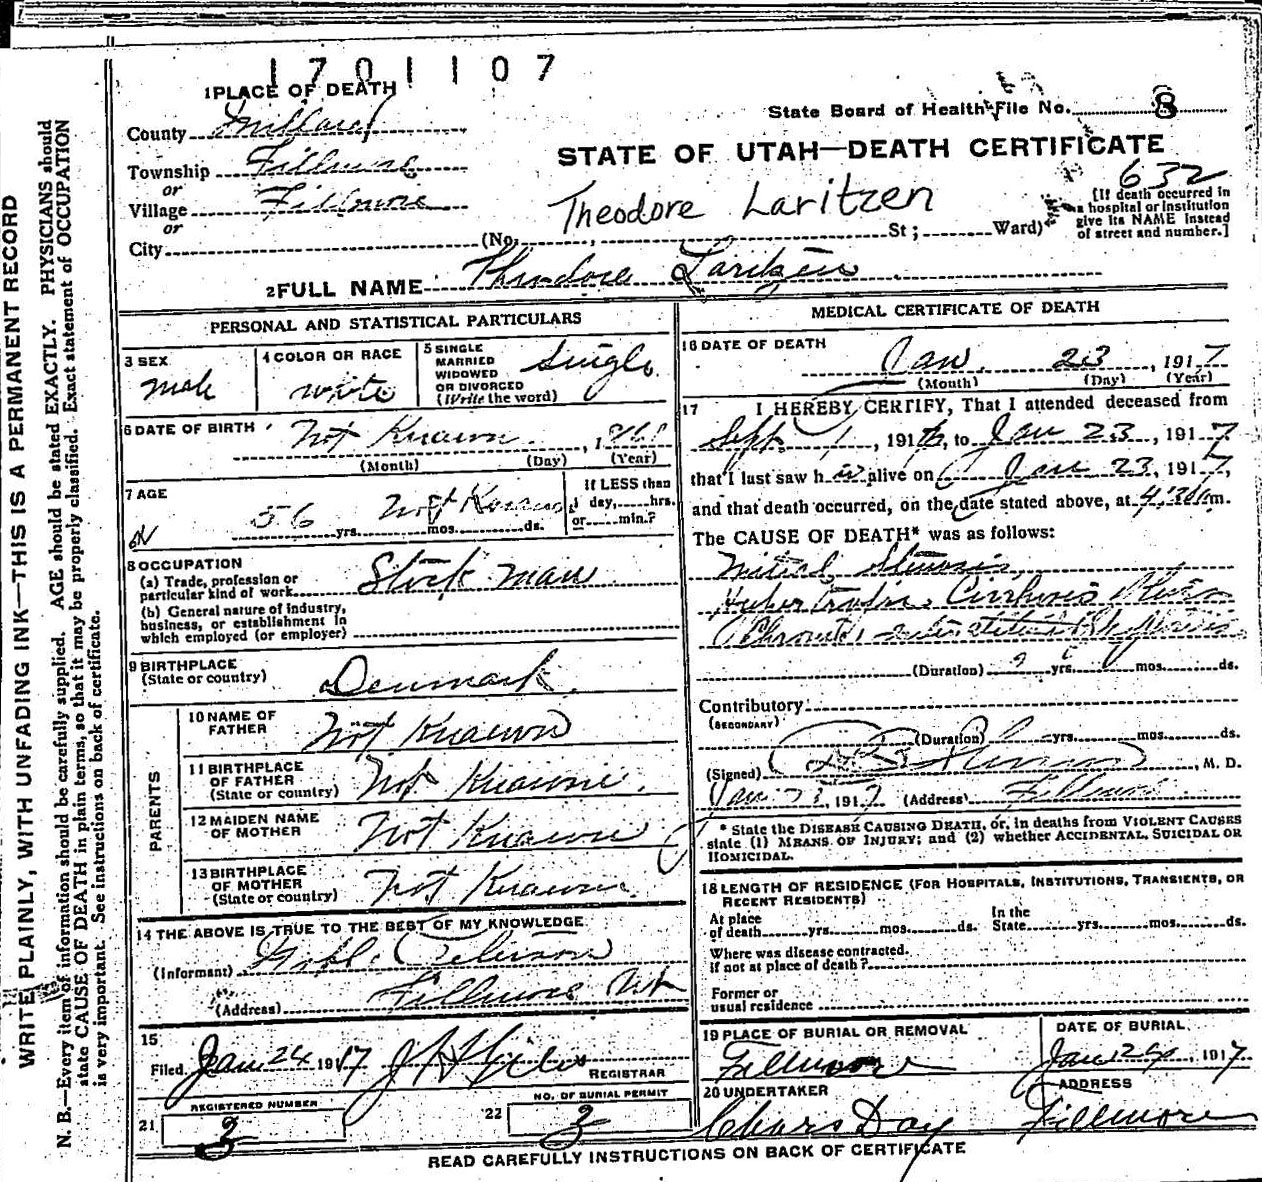 1701107
1 PLACE OF DEATH
State Board of Health File No. 8
County Millard
STATE OF UTAH—DEATH CERTIFICATE
Township Fillmore
632
or
Village Fillmore
Theodore Laritzen
[If death occurred in a hospital or institution give its NAME instead of street and number.]
or
City (No. , St ; Ward)
2 FULL NAME Theodore Laritzen
PERSONAL AND STATISTICAL PARTICULARS
3 SEX
male
4 COLOR OR RACE
white
5 SINGLE
MARRIED
WIDOWED
OR DIVORCED
(Write the word)
Single
6 DATE OF BIRTH Not Known , 1
(Month) (Day) (Year)
7 AGE
56 yrs. Not Known mos. ds.
If LESS than
1 day, hrs.
or min.?
8 OCCUPATION
(a) Trade, profession or
particular kind of work Stock man
(b) General nature of industry,
business, or establishment in
which employed (or employer)
9 BIRTHPLACE
(State or country) Denmark
PARENTS
10 NAME OF
FATHER Not Known
11 BIRTHPLACE
OF FATHER
(State or country) Not Known
12 MAIDEN NAME
OF MOTHER Not Known
13 BIRTHPLACE
OF MOTHER
(State or country) Not Known
14 THE ABOVE IS TRUE TO THE BEST OF MY KNOWLEDGE
(Informant)
(Address) Fillmore Ut
15
Filed Jan 24 1917 REGISTRAR
REGISTERED NUMBER
21 3
NO. OF BURIAL PERMIT
22 3
MEDICAL CERTIFICATE OF DEATH
16 DATE OF DEATH
Jan. 23, 1917
(Month) (Day) (Year)
17 I HEREBY CERTIFY, That I attended deceased from
Sept 1, 1916, to Jan 23, 1917
that I last saw him alive on Jan 23, 1917,
and that death occurred, on the date stated above, at 4:30 m.
The CAUSE OF DEATH* was as follows:
Mitral Stenosis,
Cirrhosis
Chronic interstitial
(Duration) yrs. mos. ds.
Contributory
(SECONDARY)
(Duration) yrs. mos. ds.
(Signed) , M. D.
Jan 23, 1917 (Address) Fillmore
* State the DISEASE CAUSING DEATH, or, in deaths from VIOLENT CAUSES
state (1) MEANS OF INJURY; and (2) whether ACCIDENTAL, SUICIDAL OR
HOMICIDAL.
18 LENGTH OF RESIDENCE (FOR HOSPITALS, INSTITUTIONS, TRANSIENTS, OR
RECENT RESIDENTS)
At place
of death yrs. mos. ds.
In the
State yrs. mos. ds.
Where was disease contracted.
If not at place of death?
Former or
usual residence
19 PLACE OF BURIAL OR REMOVAL
Fillmore
DATE OF BURIAL
Jan 24, 1917
20 UNDERTAKER
Chars Day
ADDRESS
Fillmore
READ CAREFULLY INSTRUCTIONS ON BACK OF CERTIFICATE
WRITE PLAINLY, WITH UNFADING INK—THIS IS A PERMANENT RECORD
N. B.—Every item of information should be carefully supplied. AGE should be stated EXACTLY. PHYSICIANS should
state CAUSE OF DEATH in plain terms, so that it may be properly classified. Exact statement of OCCUPATION
is very important. See instructions on back of certificate.